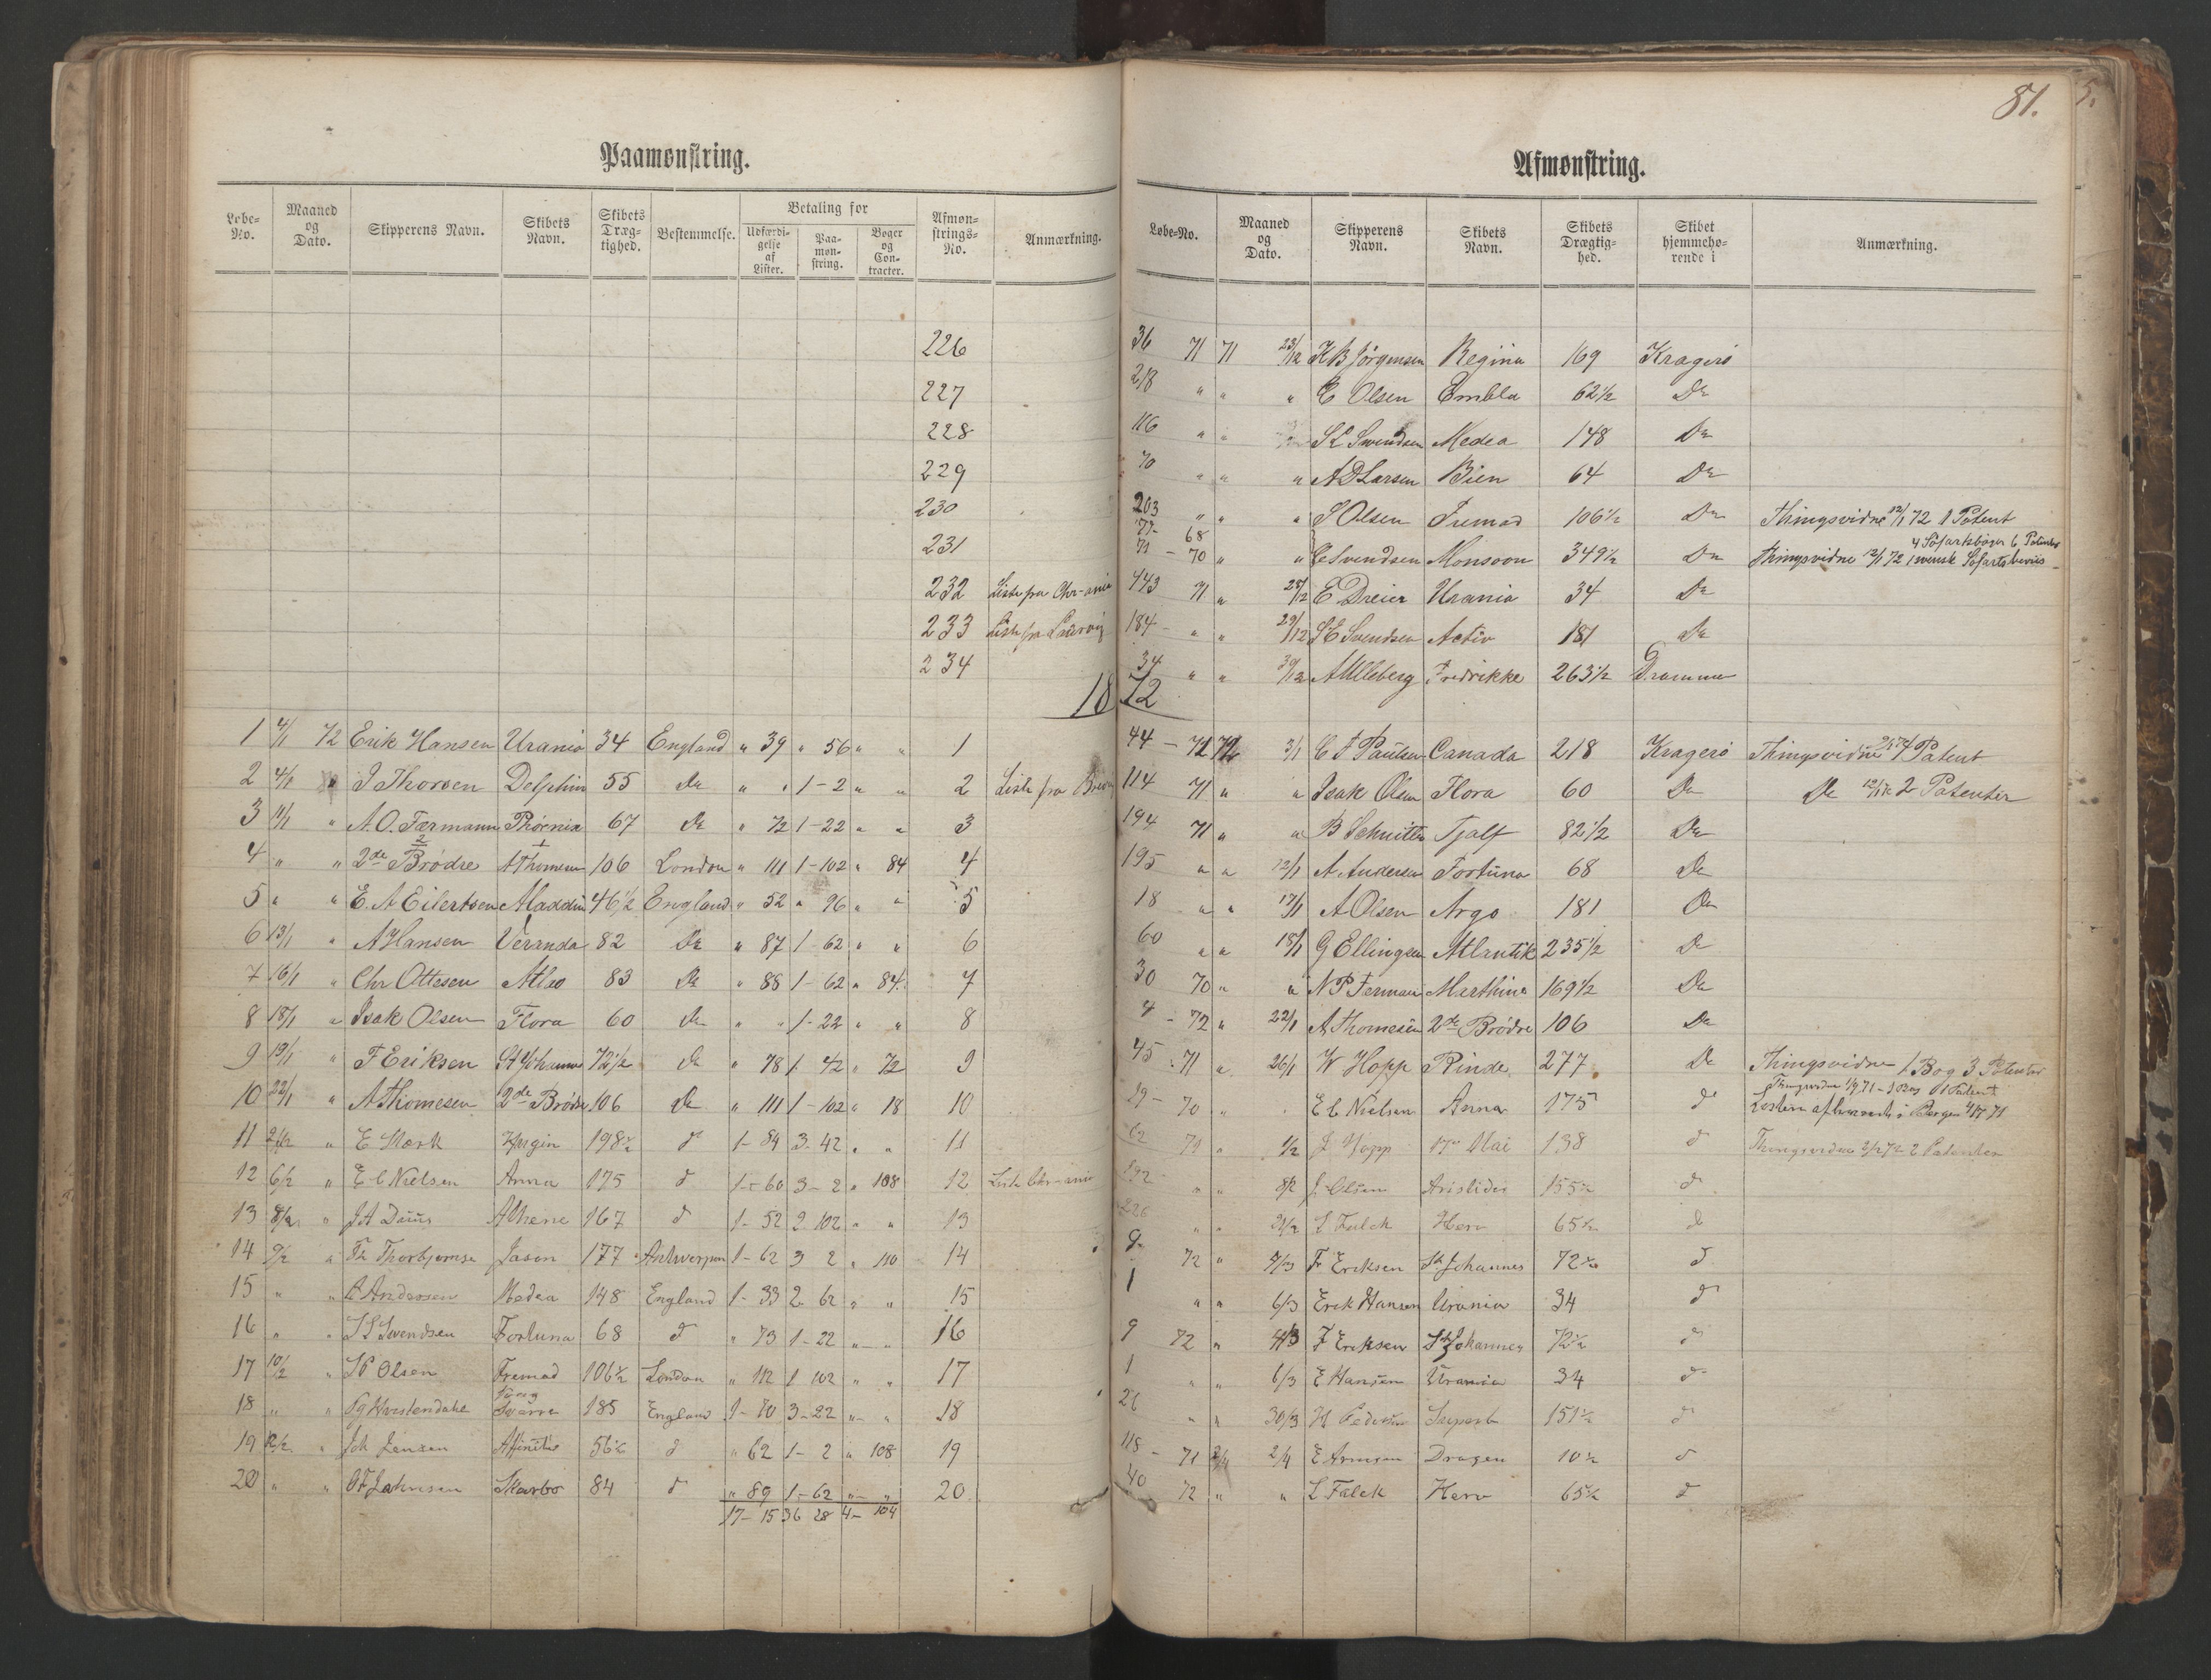 81.
Paamønstring.
Løbe-No. Maaned og Dato. Skipperens Navn. Skibets Navn. Skibets Drægtighed. Bestemmelse. Betaling for Udfærdigelse af Lister. Paamønstring. Bøger og Contracter. Afmønstrings-No. Anmærkning.
226
227
228
229
230
231
232 Liste fra Chr-ania
233 Liste fra
234
18
1 4/1 72 Erik Hansen Urania 34 England " 39 " 56 " " 1
2 4/1 " J Thorsen Delphin 55 Do " " 1-2 " " 2 Liste fra
3 11/1 " A.O. Færmann Phønix 67 Do " 72 1-22 " " 3
4 " " 2de Brødre A Thomesen 106 London " 111 1-102 " 84 4
5 " " E. A Eilertsen Aladdin 46 1/2 England " 52 " 96 " " 5
6 13/1 " A Hansen Veranda 82 Do " 87 1-62 " " 6
7 16/1 " Chr Ottesen Atlas 83 Do " 88 1-62 " 84 7
8 18/1 " Isak Olsen Flora 60 Do " " 1-22 " " 8
9 19/1 " F Eriksen St Johannes 72 1/2 Do " 78 1 42 " 72 9
10 22/1 " A Thomesen 2de Brødre 106 Do " 111 1-102 " 18 10
11 " E Stærk 198 1/2 d 1-84 3-42 " " 11
12 6/2 " E C Nielsen Anna 175 d 1-60 3-2 " 108 12 Liste Chr-ania
13 8/2 " J A Athene 167 d 1-52 2 102 " " 13
14 9/2 " Thorbjørnse Jason 177 Antwerpen 1-62 3 2 " 110 14
15 " " Andersen Medea 148 England 1-33 2-62 " " 15
16 " " S L Svendsen Fortuna 68 d " 73 1-22 " " 16
17 10/2 " Olsen Fremad 106 1/2 London " 112 1 102 " " 17
18 " " 185 England 1-70 3-22 " " 18
19 12/2 " Joh Jensen 56 1/2 d " 62 1-2 " 108 19
20 " " Skarbo 84 d " 89 1-62 " " 20
17-15 36 28 4-104
Afmønstring.
Løbe-No. Maaned og Dato. Skipperens Navn. Skibets Navn. Skibets Drægtighed. Skibet hjemmehørende i Anmærkning.
36 71 71 23/12 K B Jørgensen Regina 169 Kragerø
218 " " " E Olsen Embla 62 1/2 Do
116 " " " S L Svendsen Medea 148 Do
70 " " " A D Larsen Bien 64 Do
203 " " " S Olsen Fremad 106 1/2 Do Thingsvidne 12/1 72 1 Patent
77- 68
71 - 70 " " C Svendsen Monsoon 349 1/2 Do Thingsvidne 12/1 72 4 Søfartsbøger 6 Patenter 1 svensk Søfartsbeviis
143 71 " 28/12 E Dreier Urania 34 Do
184- " " 29/12 S E Svendsen Activ 181 Do
34 " " 30/12 A Ulleberg Fredrikke 263 1/2 Drammen
72
44 - 71 72 3/1 C F Paulsen Canada 218 Kragerø Thingsvidne Patent
114 71 " " Isak Olsen Flora 60 Do Do 2 Patenter
194 71 " " B Schnitler Tjalf 82 1/2 Do
195 " " 12/1 A Andersen Fortuna 68 Do
18 " " 17/1 A Olsen Argo 181 Do
60 " " 18/1 G Ellingsen Atlantik 235 1/2 Do
30 70 " " N P Ferman Marthina 169 1/2 Do
4 - 72 " 22/1 A Thomesen 2de Brødre 106 Do
45 - 71 " 26/1 W Hopp Rinde 277 Do Thingsvidne 1 Bog 3 Patenter
29 - 70 " " E C Nielsen Anna 175 d
62 71 " 1/2 J Hopp 17de Mai 138 d Thingsvidne 2/2 72 2 Patenter
192 " " 8/2 J. Olsen Aristides 155 1/2 d
226 " " L Falck Herv 65 1/2 d
9 72 " Fr Eriksen St Johannes 72 1/2 d
1 " " 6/3 Erik Hansen Urania 34 d
9 72 " F Eriksen St Johannes 72 1/2 d
1 " " 6/3 E Hansen Urania 34 d
26 " " 30/3 H Pedersen Superb 151 1/2 d
118 - 71 2/4 E Dragen 10 1/2 d
40 72 " " L Falck Herv 65 1/2 d